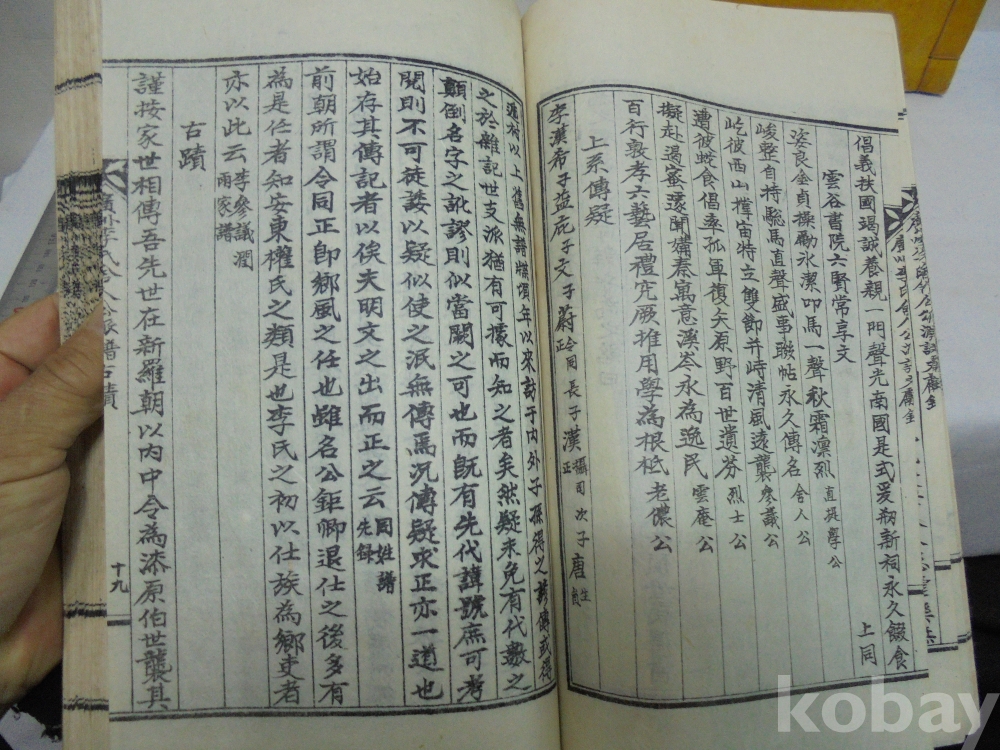 倡義扶國竭誠養親一門聲光南國是式爰刱新祠永久餟食 上同
雲谷書院六賢常享文
姿良金貞操勵氷潔叩馬一聲秋霜凛烈 直提學公
峻整自持驄馬直聲盛事聯帖永久傳名 舍人公
屹彼西山撑宙特立雙節并峙清風遠襲 參議公
遭彼蜂食倡率孤軍復矢原野百世遺芬 烈士公
擬赴遏密遠聞 秦寓意溪岑永為逸民 雲庵公
百行敦孝六藝居禮究厥推用學為根柢 老儂公
上系傳疑
李漢希子益庇子文子蔚 令同正 長子漢 攝司正 次子唐 生員
以上舊無譜牒頃年以來訪于内外子孫得之諺傳或得
之於雜記世支派猶有可據而知之者矣然疑未免有代數之
顛倒名字之訛謬則似當闕之可也而既有先代諱號庶可考
閱則不可徒諉以疑似使之泯無傳焉况傳疑求正亦一道也
始存其傳記者以俟夫明文之出而正之云 同姓譜先錄
前朝所謂令同正即鄉風之任也雖名公鉅卿退仕之後多有
為是任者知安東權氏之類是也李氏之初以仕族為鄉吏者
亦以此云 李參議潤雨家譜
古蹟
謹按家世相傳吾先世在新羅朝以内中令為漆原伯世襲其
十九
kobay